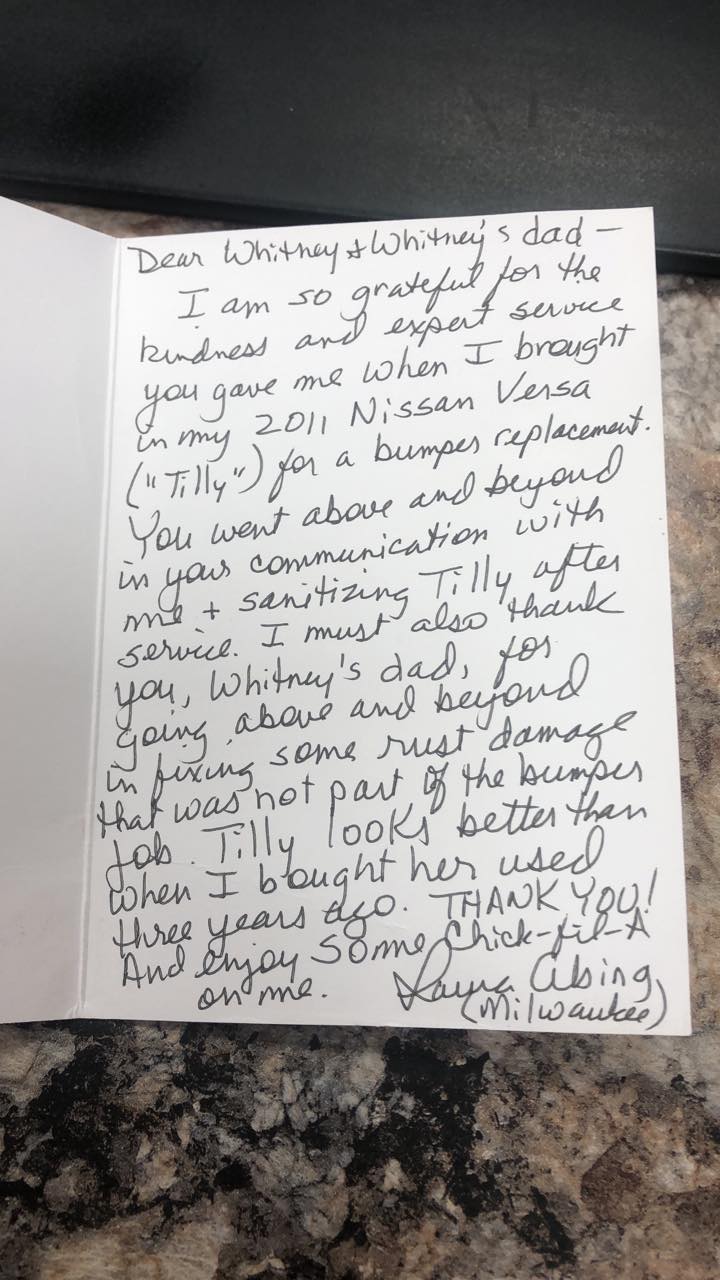 Dear Whitney & Whitney's dad —
I am so grateful for the
kindness and expert service
you gave me when I brought
in my 2011 Nissan Versa
("Tilly") for a bumper replacement.
You went above and beyond
in your communication with
me + sanitizing Tilly after
service. I must also thank
you, Whitney's dad, for
going above and beyond
in fixing some rust damage
that was not part of the bumper
job. Tilly looks better than
when I bought her used
three years ago. THANK YOU!
And enjoy some Chick-fil-A
on me. Laura Abing
(Milwaukee)